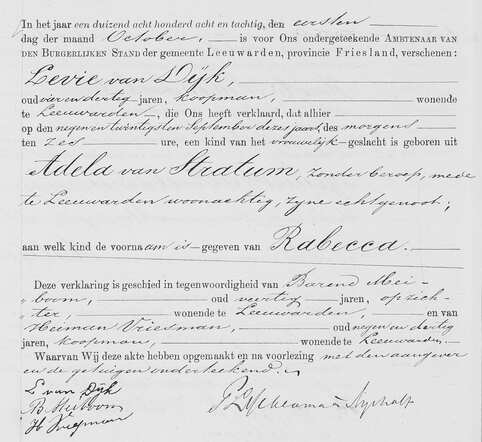 In het jaar een duizend acht honderd acht en tachtig, den eersten
dag der maand October, is voor Ons ondergeteekende AMBTENAAR VAN
DEN BURGERLIJKEN STAND der gemeente Leeuwarden, provincie Friesland, verschenen:
Levie van Dijk,
oud vier en dertig jaren, koopman, wonende
te Leeuwarden, die Ons heeft verklaard, dat alhier
op den negen en twintigsten September dezes jaars, des morgens
ten zes ure, een kind van het vrouwelijk geslacht is geboren uit
Adela van Stratum, zonder beroep, mede
te Leeuwarden woonachtig, zyne echtgenoot;
aan welk kind de voornaam is gegeven van Rabecca.
Deze verklaring is geschied in tegenwoordigheid van Barend Mei-
boom, oud veertig jaren, opzich-
ter, wonende te Leeuwarden, en van
Heiman Vriesman, oud negen en dertig
jaren, koopman, wonende te Leeuwarden.
Waarvan Wij deze akte hebben opgemaakt en na voorlezing met den aangever
en de getuigen onderteekend.
L van Dijk
B. Meiboom
H Vriesman